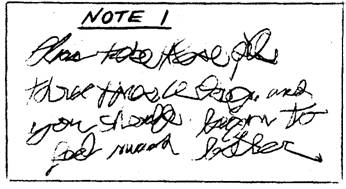 NOTE 1
Please take these pills
three times a day, and
you should begin to
feel much better